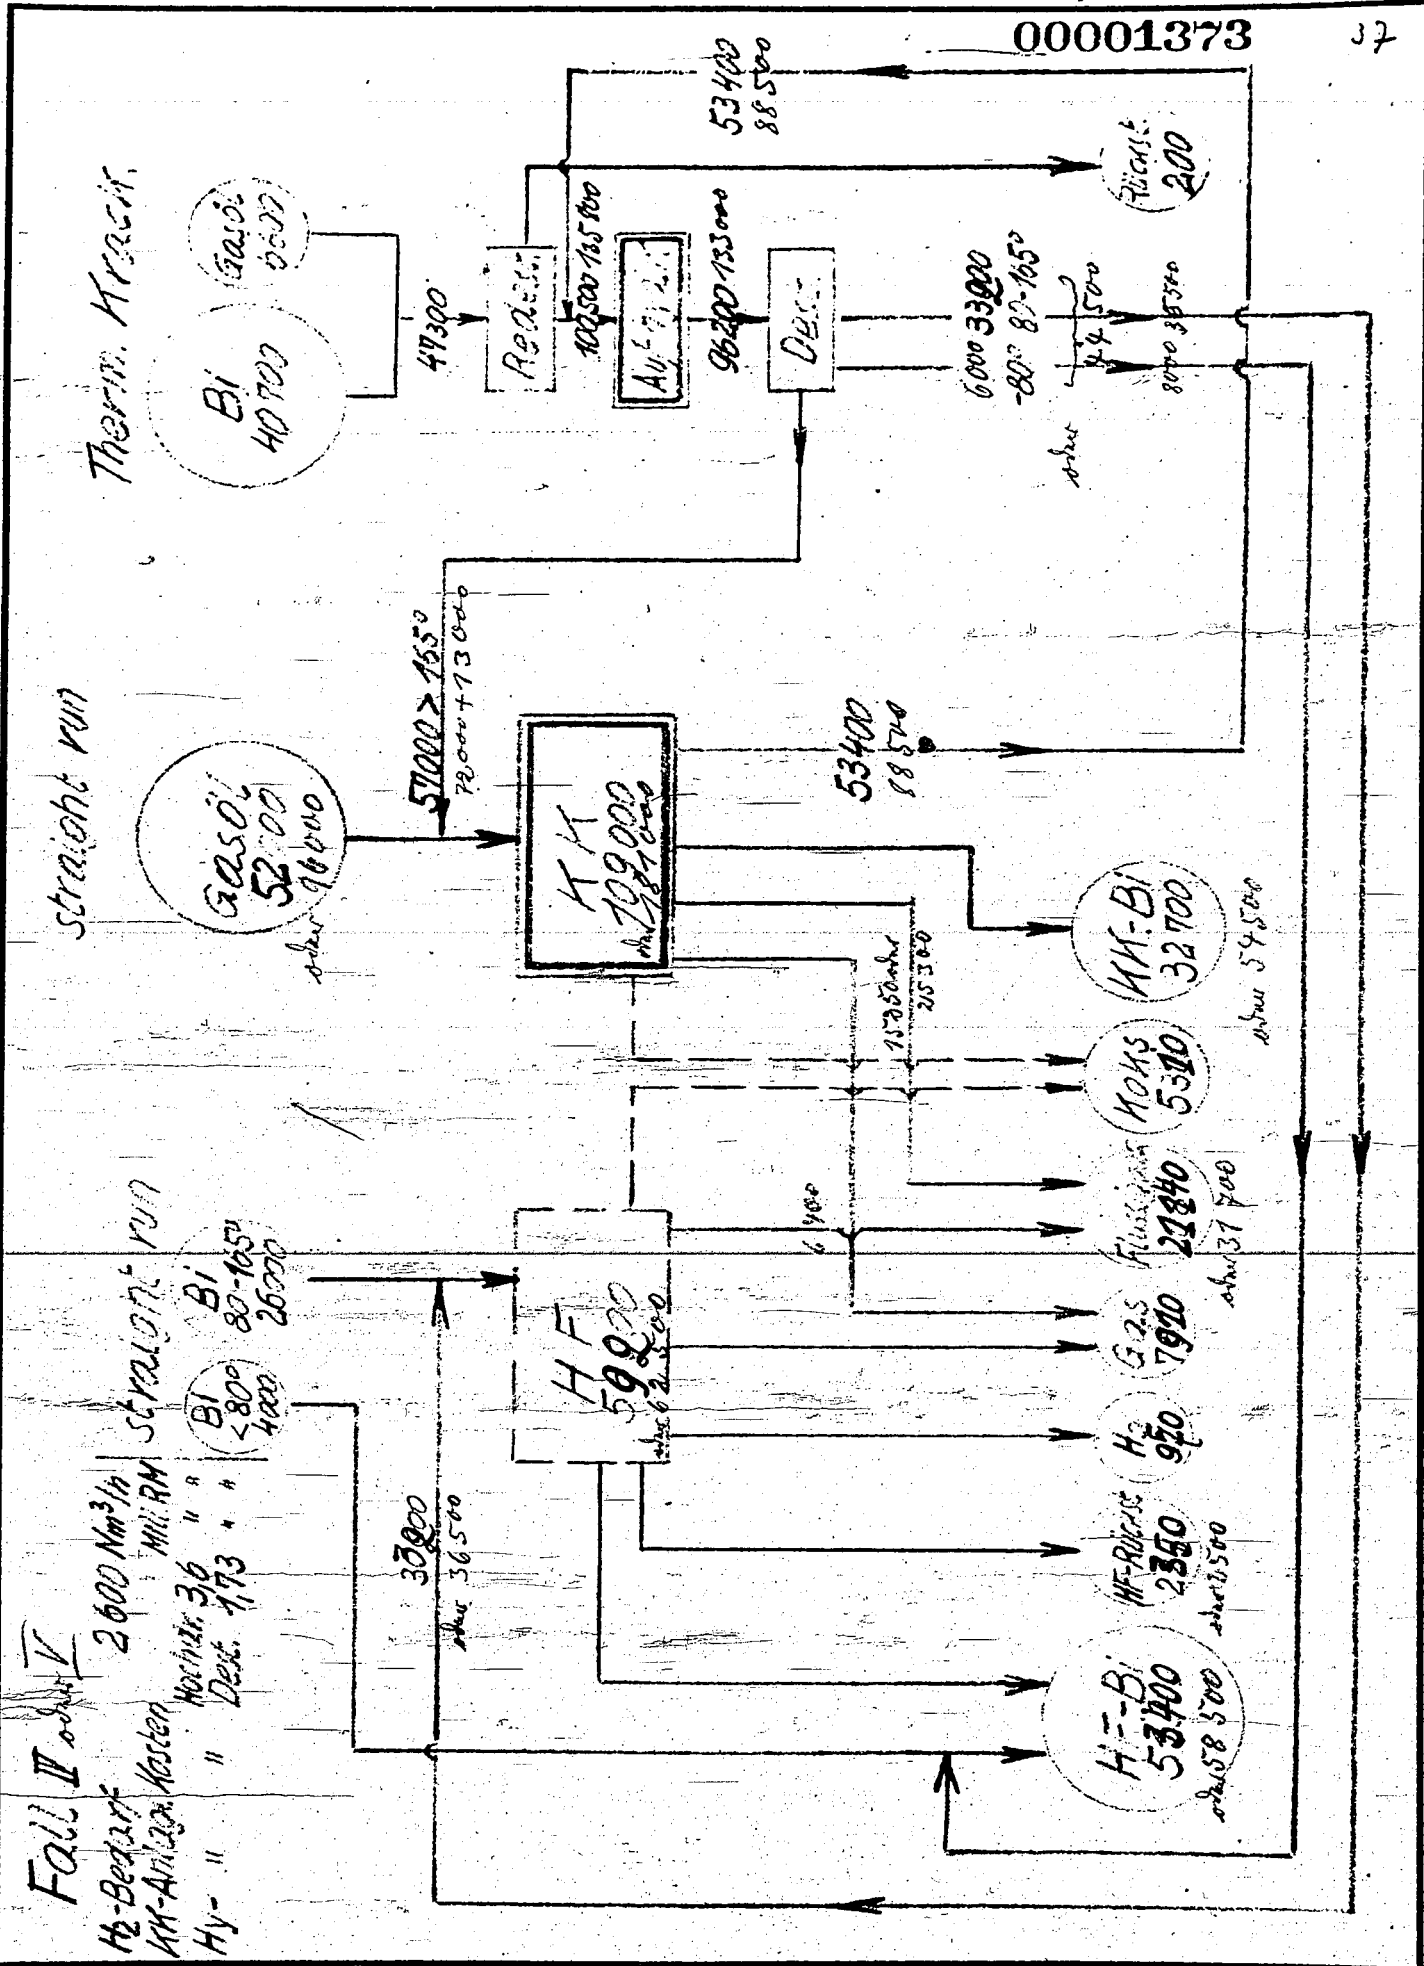 00001373
37
Fall IV oder V
H2-Bedarf 2600 Nm³/h
KK-Anlage Kosten Mill RM
Hy- " " Hochdr. 3,6 " "
Dest. 1,73 " "
straight run
Bi
<80°
4000
Bi
80-165°
26000
33900
oder 36500
HF
59900
oder 62500
HF-Bi
53400
oder 58500
HF-Rückst
2350
oder 2500
H2
970
Gas
7910
21840
oder 31700
6400
Koks
5310
KK-Bi
32700
oder 54500
straight run
Gasöl
52000
oder 96000
57000 > 165°
72000+13000
KK
109000
oder 181000
15350 oder
25300
53400
88500
Therm. Krack.
Bi
40700
Gasöl
6600
47300
Redest
100500 135800
96200 133000
Dest
6000 33900
-80° 80-165°
oder
44500
8000 36500
53400
88500
Rückst.
200